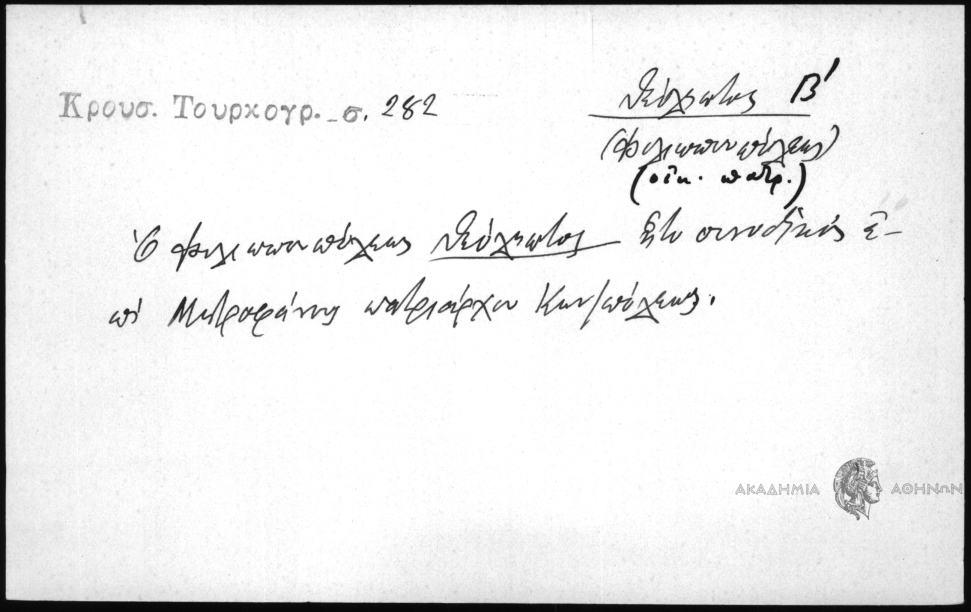 Κρουσ. Τουρκογρ. σ. 282
Θεόληπτος Β΄
(Φιλιππουπόλεως)
(οἰκ. πατρ.)
Ὁ Φιλιππουπόλεως Θεόληπτος ἦτο συνοδικός ἐ-
πί Μητροφάνους πατριάρχου Κων/πόλεως.
ΑΚΑΔΗΜΙΑ ΑΘΗΝΩΝ